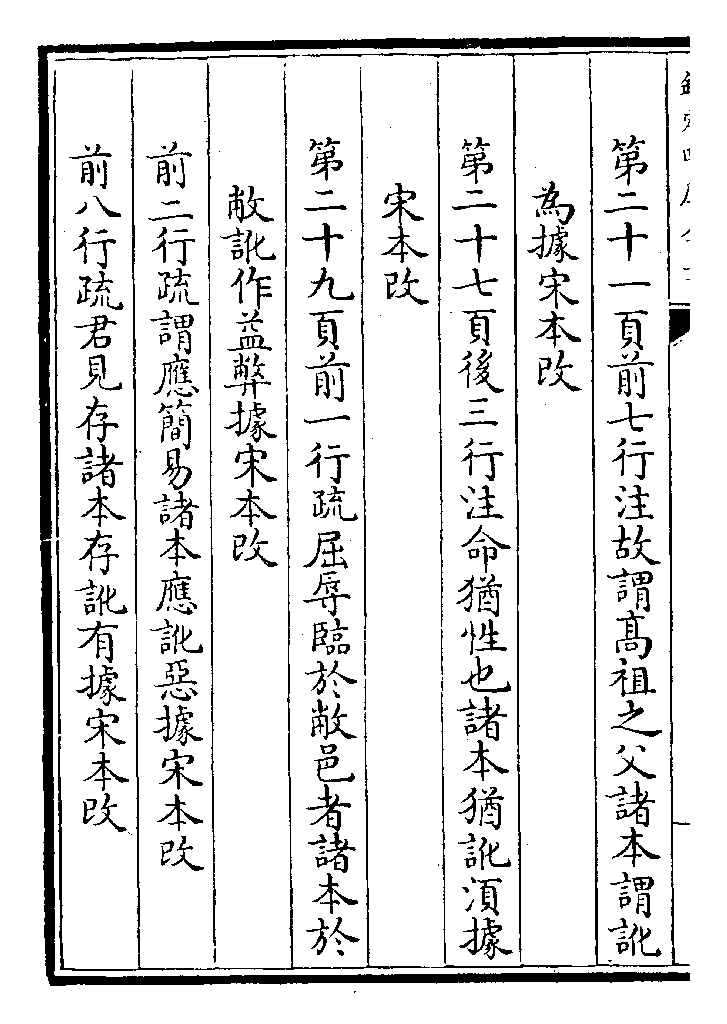 第二十一頁前七行注故謂高祖之父諸本謂訛
為據宋本改
第二十七頁後三行注命猶性也諸本猶訛湏據
宋本改
第二十九頁前一行疏屈辱臨於敝邑者諸本於
敝訛作益弊據宋本改
前二行疏謂應簡易諸本應訛惡據宋本改
前八行疏君見存諸本存訛有據宋本改